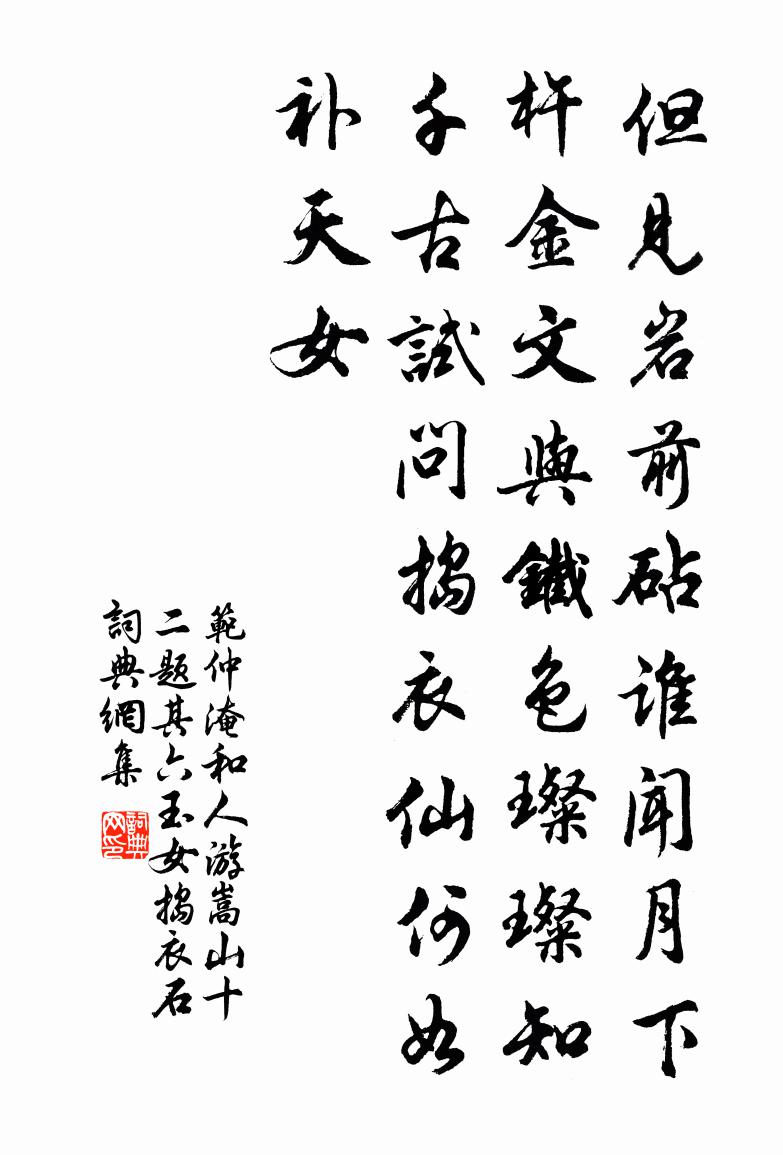 但見岩前砧谁闻月下
杵金文與鐵色璨璨知
千古試問搗衣仙何如
补天女
範仲淹和人游嵩山十
二题其六玉女搗衣石
詞典網集
詞典
网印